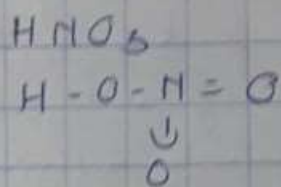 HNO3
H - O - N = O
↓
O